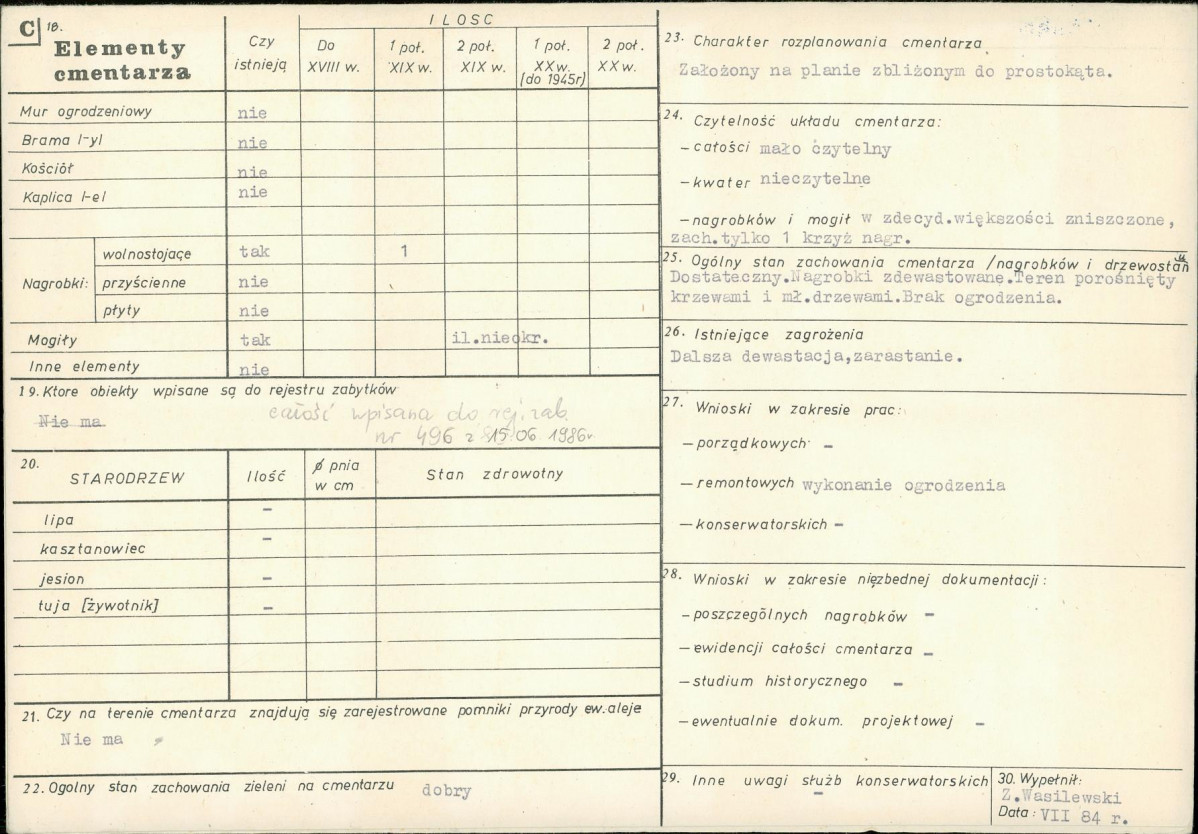 C 18.
Elementy
cmentarza
Czy
istnieją
ILOSC
Do
XVIII w.
1 poł.
XIX w.
2 poł.
XIX w.
1 poł.
XX w.
[do 1945r]
2 poł.
XX w.
Mur ogrodzeniowy nie
Brama l-yl nie
Kościół nie
Kaplica l-el nie
Nagrobki:
wolnostojące tak 1
przyścienne nie
płyty nie
Mogiły tak il.nieokr.
Inne elementy nie
19. Ktore obiekty wpisane są do rejestru zabytków
Nie ma całość wpisana do rej. zab
nr 496 z 15.06 1986r
20.
STARODRZEW Ilość
ø pnia
w cm
Stan zdrowotny
lipa –
kasztanowiec –
jesion –
tuja [żywotnik] –
21. Czy na terenie cmentarza znajdują się zarejestrowane pomniki przyrody ew. aleje
Nie ma
22. Ogolny stan zachowania zieleni na cmentarzu dobry
23. Charakter rozplanowania cmentarza
Założony na planie zbliżonym do prostokąta.
24. Czytelność układu cmentarza:
– całości mało czytelny
– kwater nieczytelne
– nagrobków i mogił w zdecyd.większości zniszczone,
zach.tylko 1 krzyż nagr.
25. Ogólny stan zachowania cmentarza /nagrobków i drzewostanu
Dostateczny.Nagrobki zdewastowane.Teren porośnięty
krzewami i mł.drzewami.Brak ogrodzenia.
26. Istniejące zagrożenia
Dalsza dewastacja,zarastanie.
27. Wnioski w zakresie prac:
– porządkowych –
– remontowych wykonanie ogrodzenia
– konserwatorskich –
28. Wnioski w zakresie nięzbednej dokumentacji:
– poszczególnych nagrobków –
– ewidencji całości cmentarza –
– studium historycznego –
– ewentualnie dokum. projektowej –
29. Inne uwagi służb konserwatorskich
–
30. Wypełnił:
Z.Wasilewski
Data: VII 84 r.